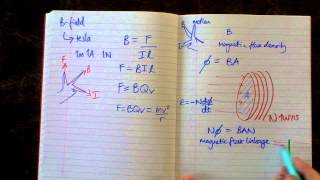 B-field
↳ tesla
1m 1A 1N
B = F / Il
F = BIl
F = BQv
F = BQv = mv² / r
F
B
I
motion
B
magnetic flux density
ϕ = BA
ε = -N dϕ / dt
A
N-turns
Nϕ = BAN
magnetic flux linkage